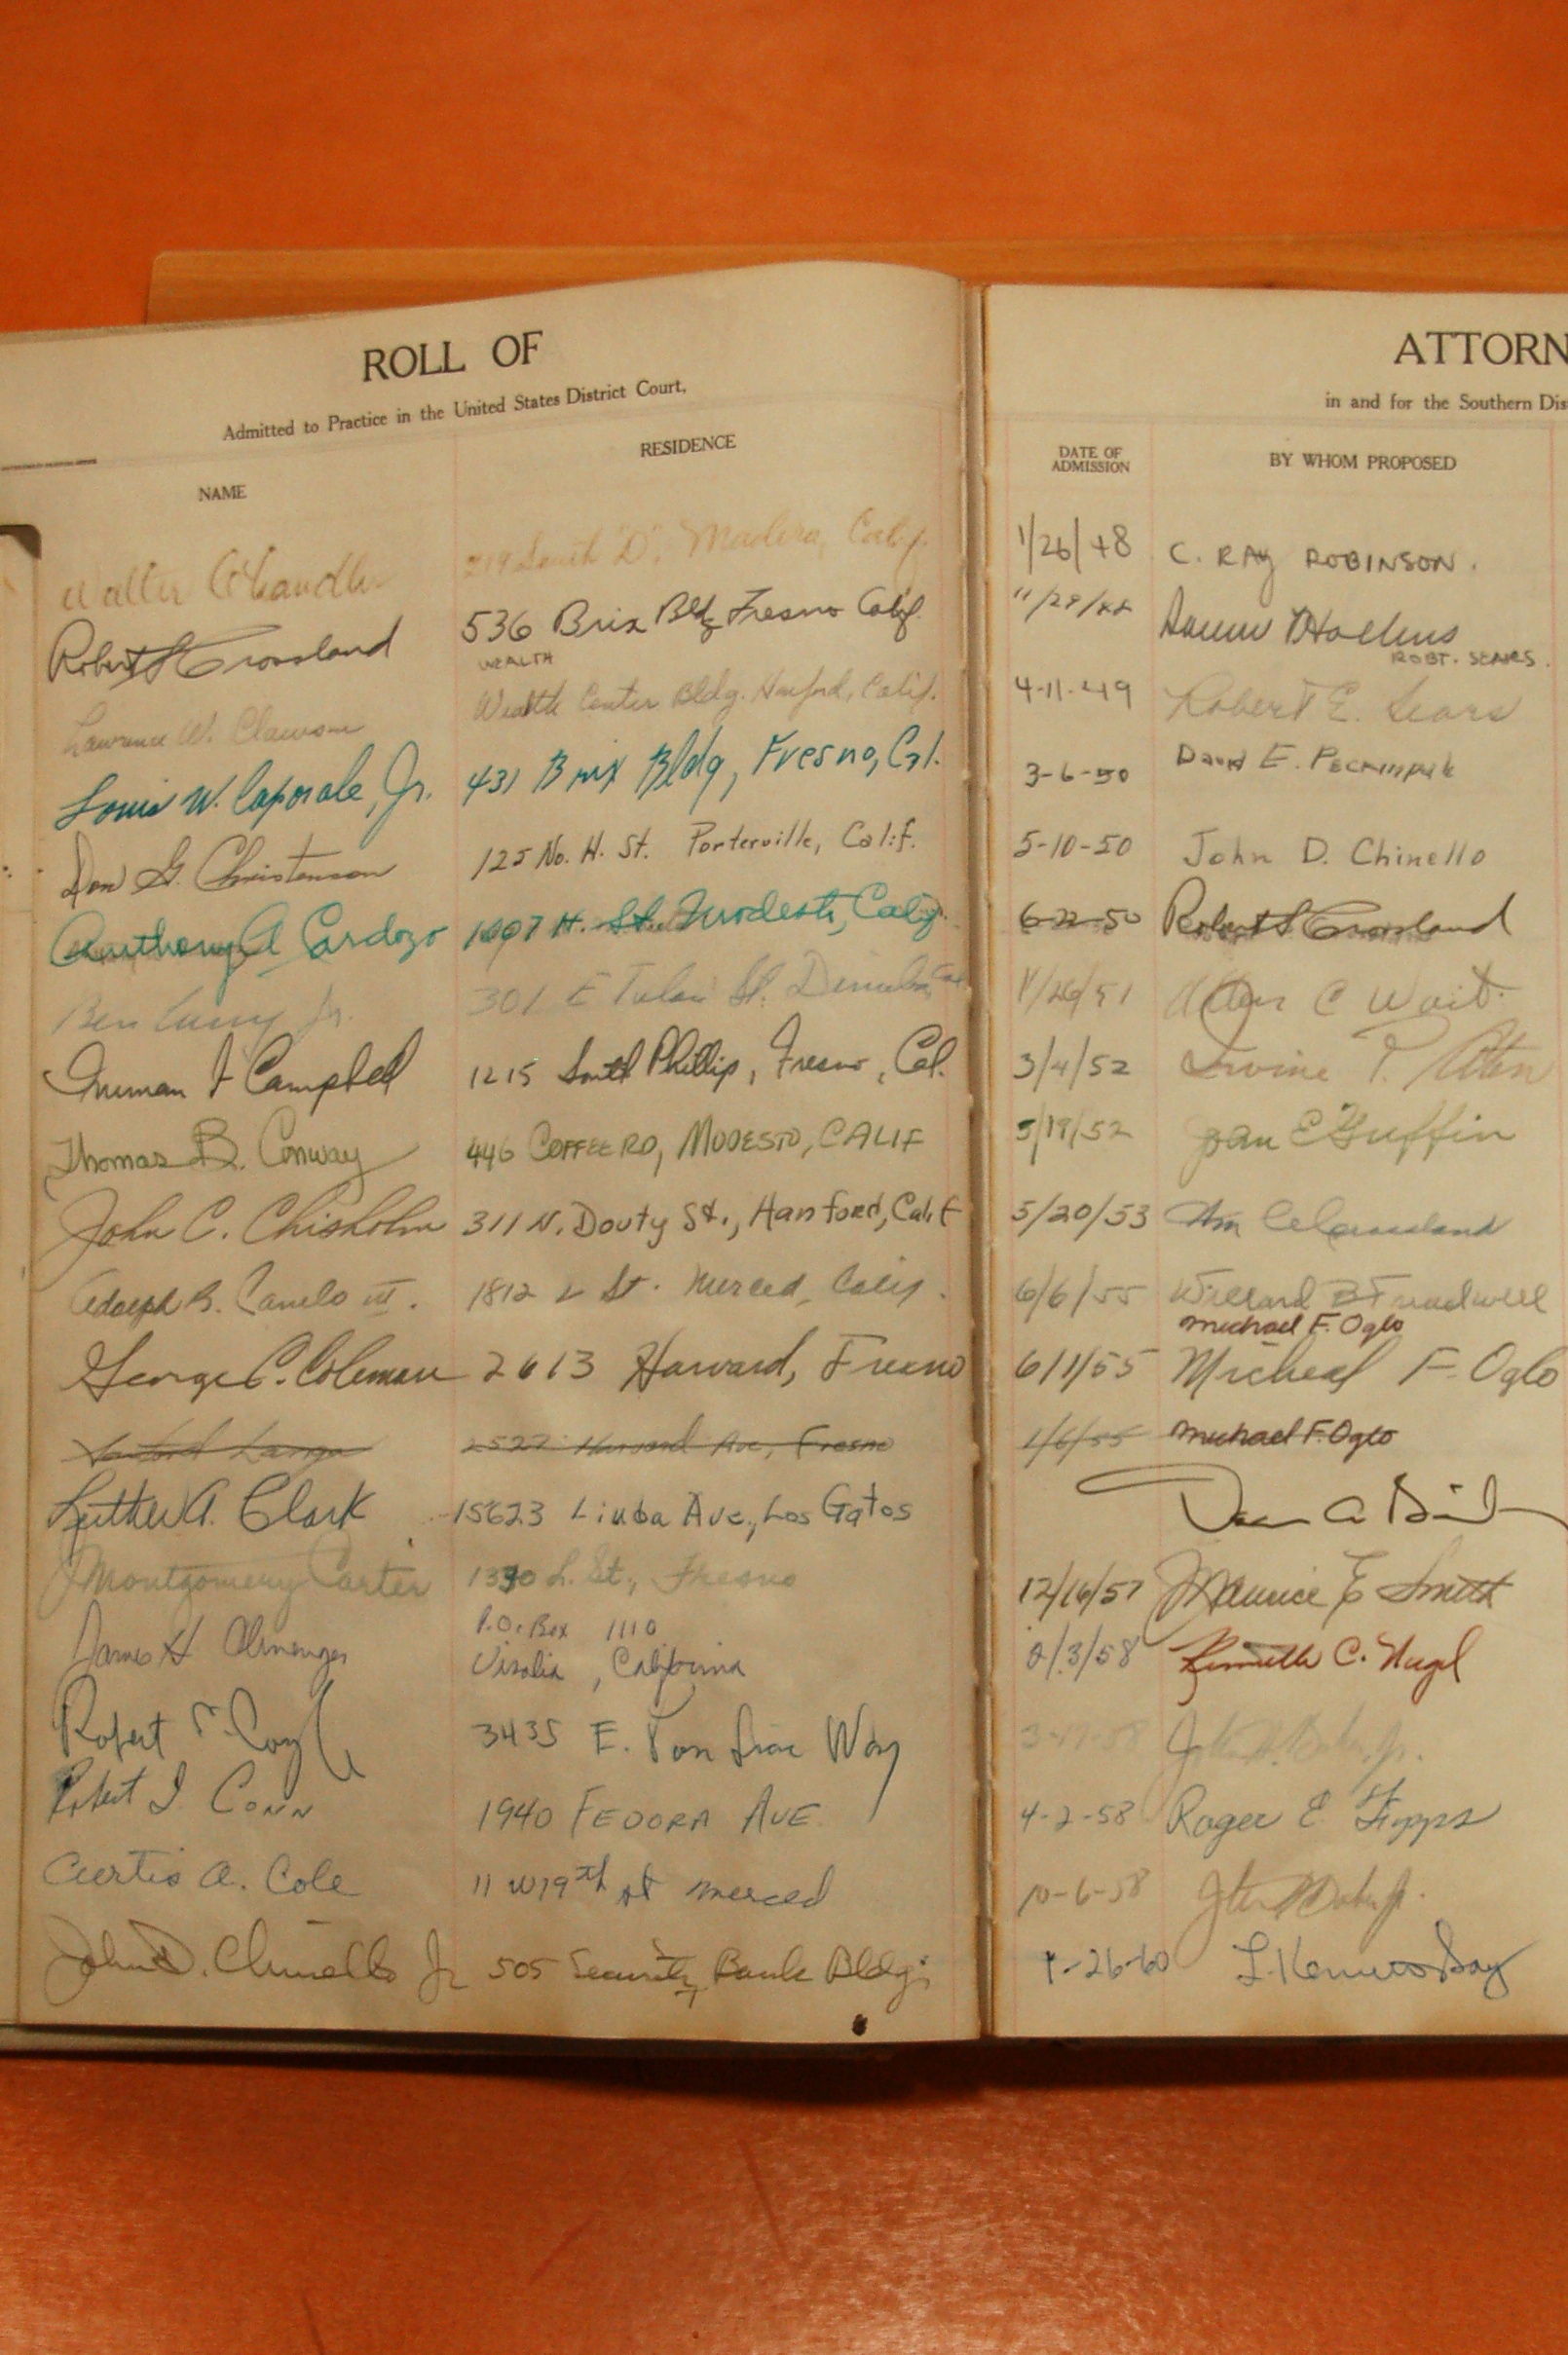 ROLL OF
Admitted to Practice in the United States District Court,
NAME
RESIDENCE
ATTORN
in and for the Southern Dis
DATE OF
ADMISSION
BY WHOM PROPOSED
Walter 219 South "D". Madera, Calif. 1/26/48 C. RAY ROBINSON.
Robert L Crossland 536 Brix Bldg Fresno Calif. 11/29/48 Hollins
WEALTH ROBT. SEARS.
Lawrence W. Clawson Wealth Center Bldg. Hanford, Calif. 4-11-49 Robert E. Sears
Louis W. Caporale, Jr. 431 Brix Bldg, Fresno, Cal. 3-6-50 David E. Peckinpah
Don G. Christenson 125 No. H. St. Porterville, Calif. 5-10-50 John D. Chinello
Anthony A Cardozo 1007 H. St. Modesto, Calif. 6-22-50 Robert L Crossland
Ben Curry Jr. 301 E Tulare St. Dinuba, Cal 1/26/51 C Wait.
Truman F Campbell 1215 South Phillip, Fresno, Cal. 3/4/52 Irvine P. Aten
Thomas B. Conway 446 COFFEE RD, MODESTO, CALIF 5/19/52 E Griffin
John C. Chisholm 311 N. Douty St., Hanford, Calif 5/20/53 Wm
Adolph B. Canelo III. 1812 L St. Merced, Calif. 6/6/55 Willard B Treadwell
Michael F. Oglo
George C. Coleman 2613 Harvard, Fresno 6/1/55 Micheal F. Oglo
2527 Harvard Ave, Fresno 1/6/55 Michael F. Oglo
Luther A. Clark 15623 Linda Ave., Los Gatos
Montgomery Carter 1330 L. St., Fresno 12/16/57 Maurice E Smith
P.O. Box 1110
James H. Visalia, California 2/3/58 Kenneth C. Nagel
Robert Coyle 3435 E. Way 3-17-58
Robert I. Conn 1940 FEDORA AVE. 4-2-58 Roger E
Curtis A. Cole 11 W 19th St Merced 10-6-58
John D. Chinello Jr 505 Security Bank Bldg. 1-26-60